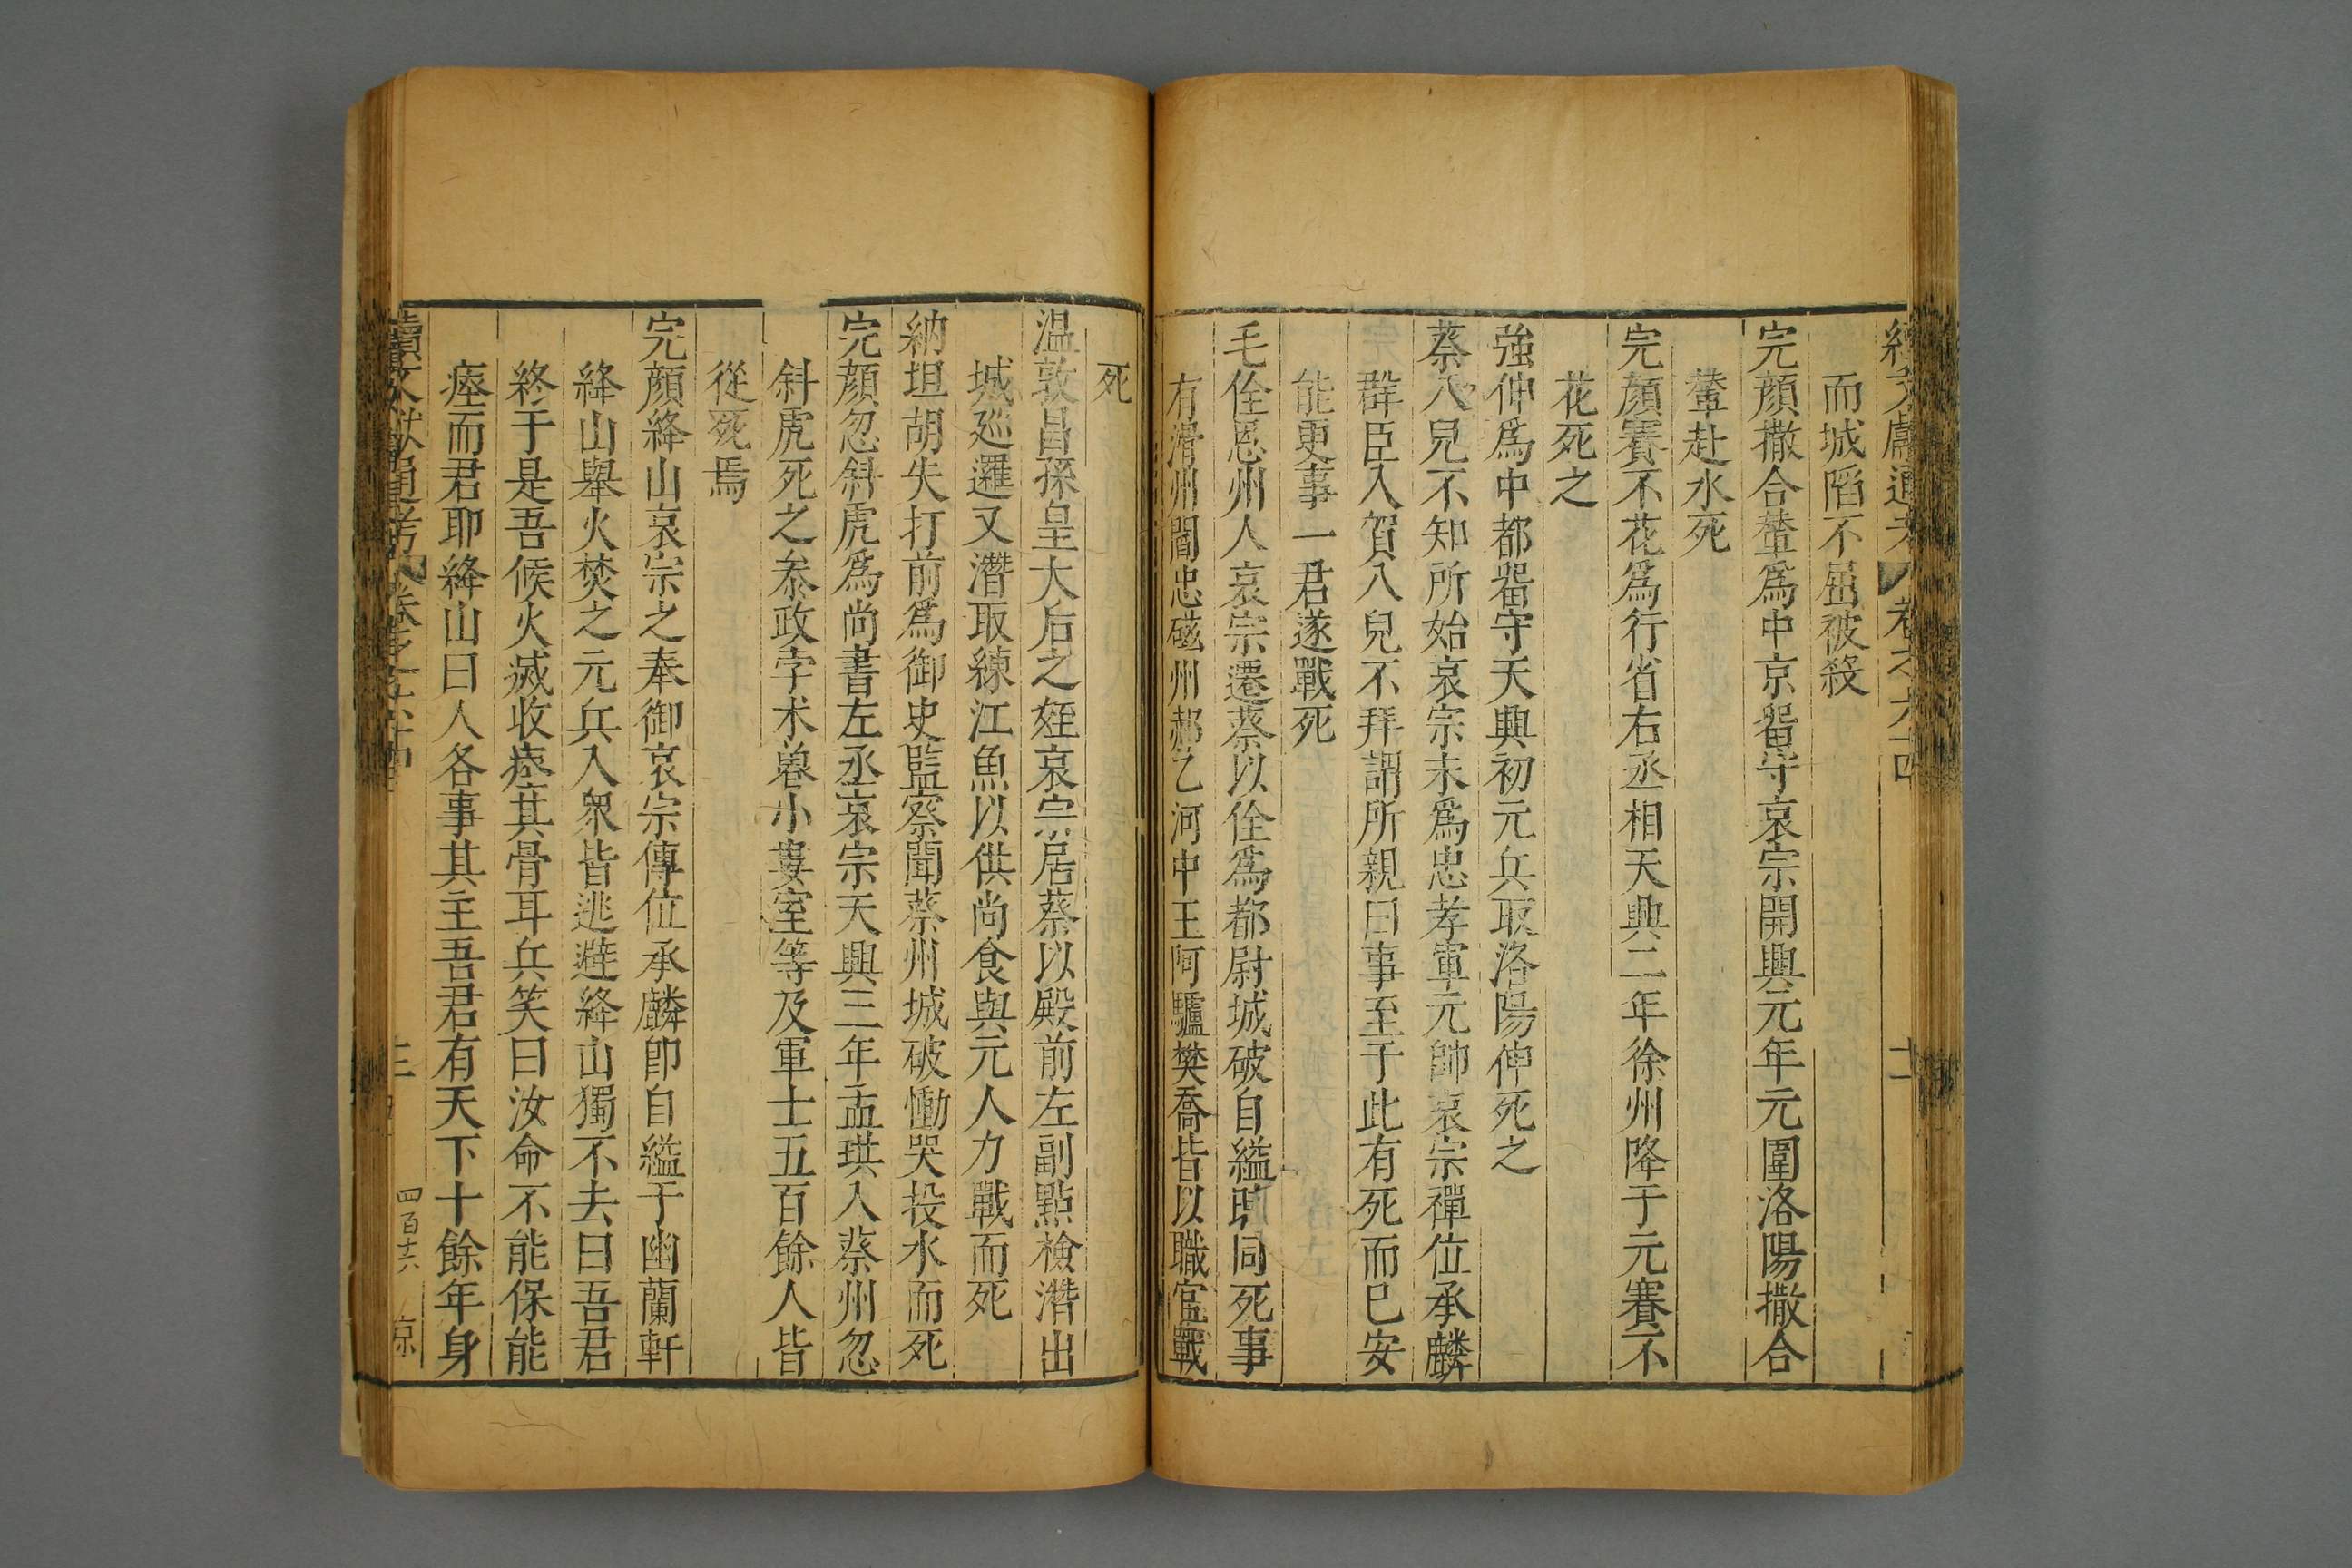 續文獻通考 卷之六十四 十二
而城陷不屈被殺
完顏撒合輦爲中京畱守哀宗開興元年元圍洛陽撒合
輦赴水死
完顏賽不花爲行省右丞相天興二年徐州降于元賽不
花死之
強伸爲中都畱守天興初元兵取洛陽伸死之
蔡八兒不知所始哀宗末爲忠孝軍元帥哀宗禪位承麟
群臣入賀八兒不拜謂所親曰事至于此有死而已安
能更事一君遂戰死
毛佺恩州人哀宗遷蔡以佺爲都尉城破自縊時同死事
有滑州閻忠磁州郝乙河中王阿驢樊喬皆以職官戰
死
温敦昌孫皇太后之姪哀宗居蔡以殿前左副點檢潛出
城巡邏又潛取練江魚以供尚食與元人力戰而死
納坦胡失打前爲御史監察聞蔡州城破慟哭投水而死
完顏忽斜虎爲尚書左丞哀宗天興三年孟珙入蔡州忽
斜虎死之叅政孛术魯小婁室等及軍士五百餘人皆
從死焉
完顏絳山哀宗之奉御哀宗傳位承麟卽自縊于幽蘭軒
絳山舉火焚之元兵入衆皆逃避絳山獨不去曰吾君
終于是吾候火滅收瘞其骨耳兵笑曰汝命不能保能
瘞而君耶絳山曰人各事其主吾君有天下十餘年身
續文獻通考 卷之六十四 四百十六 京